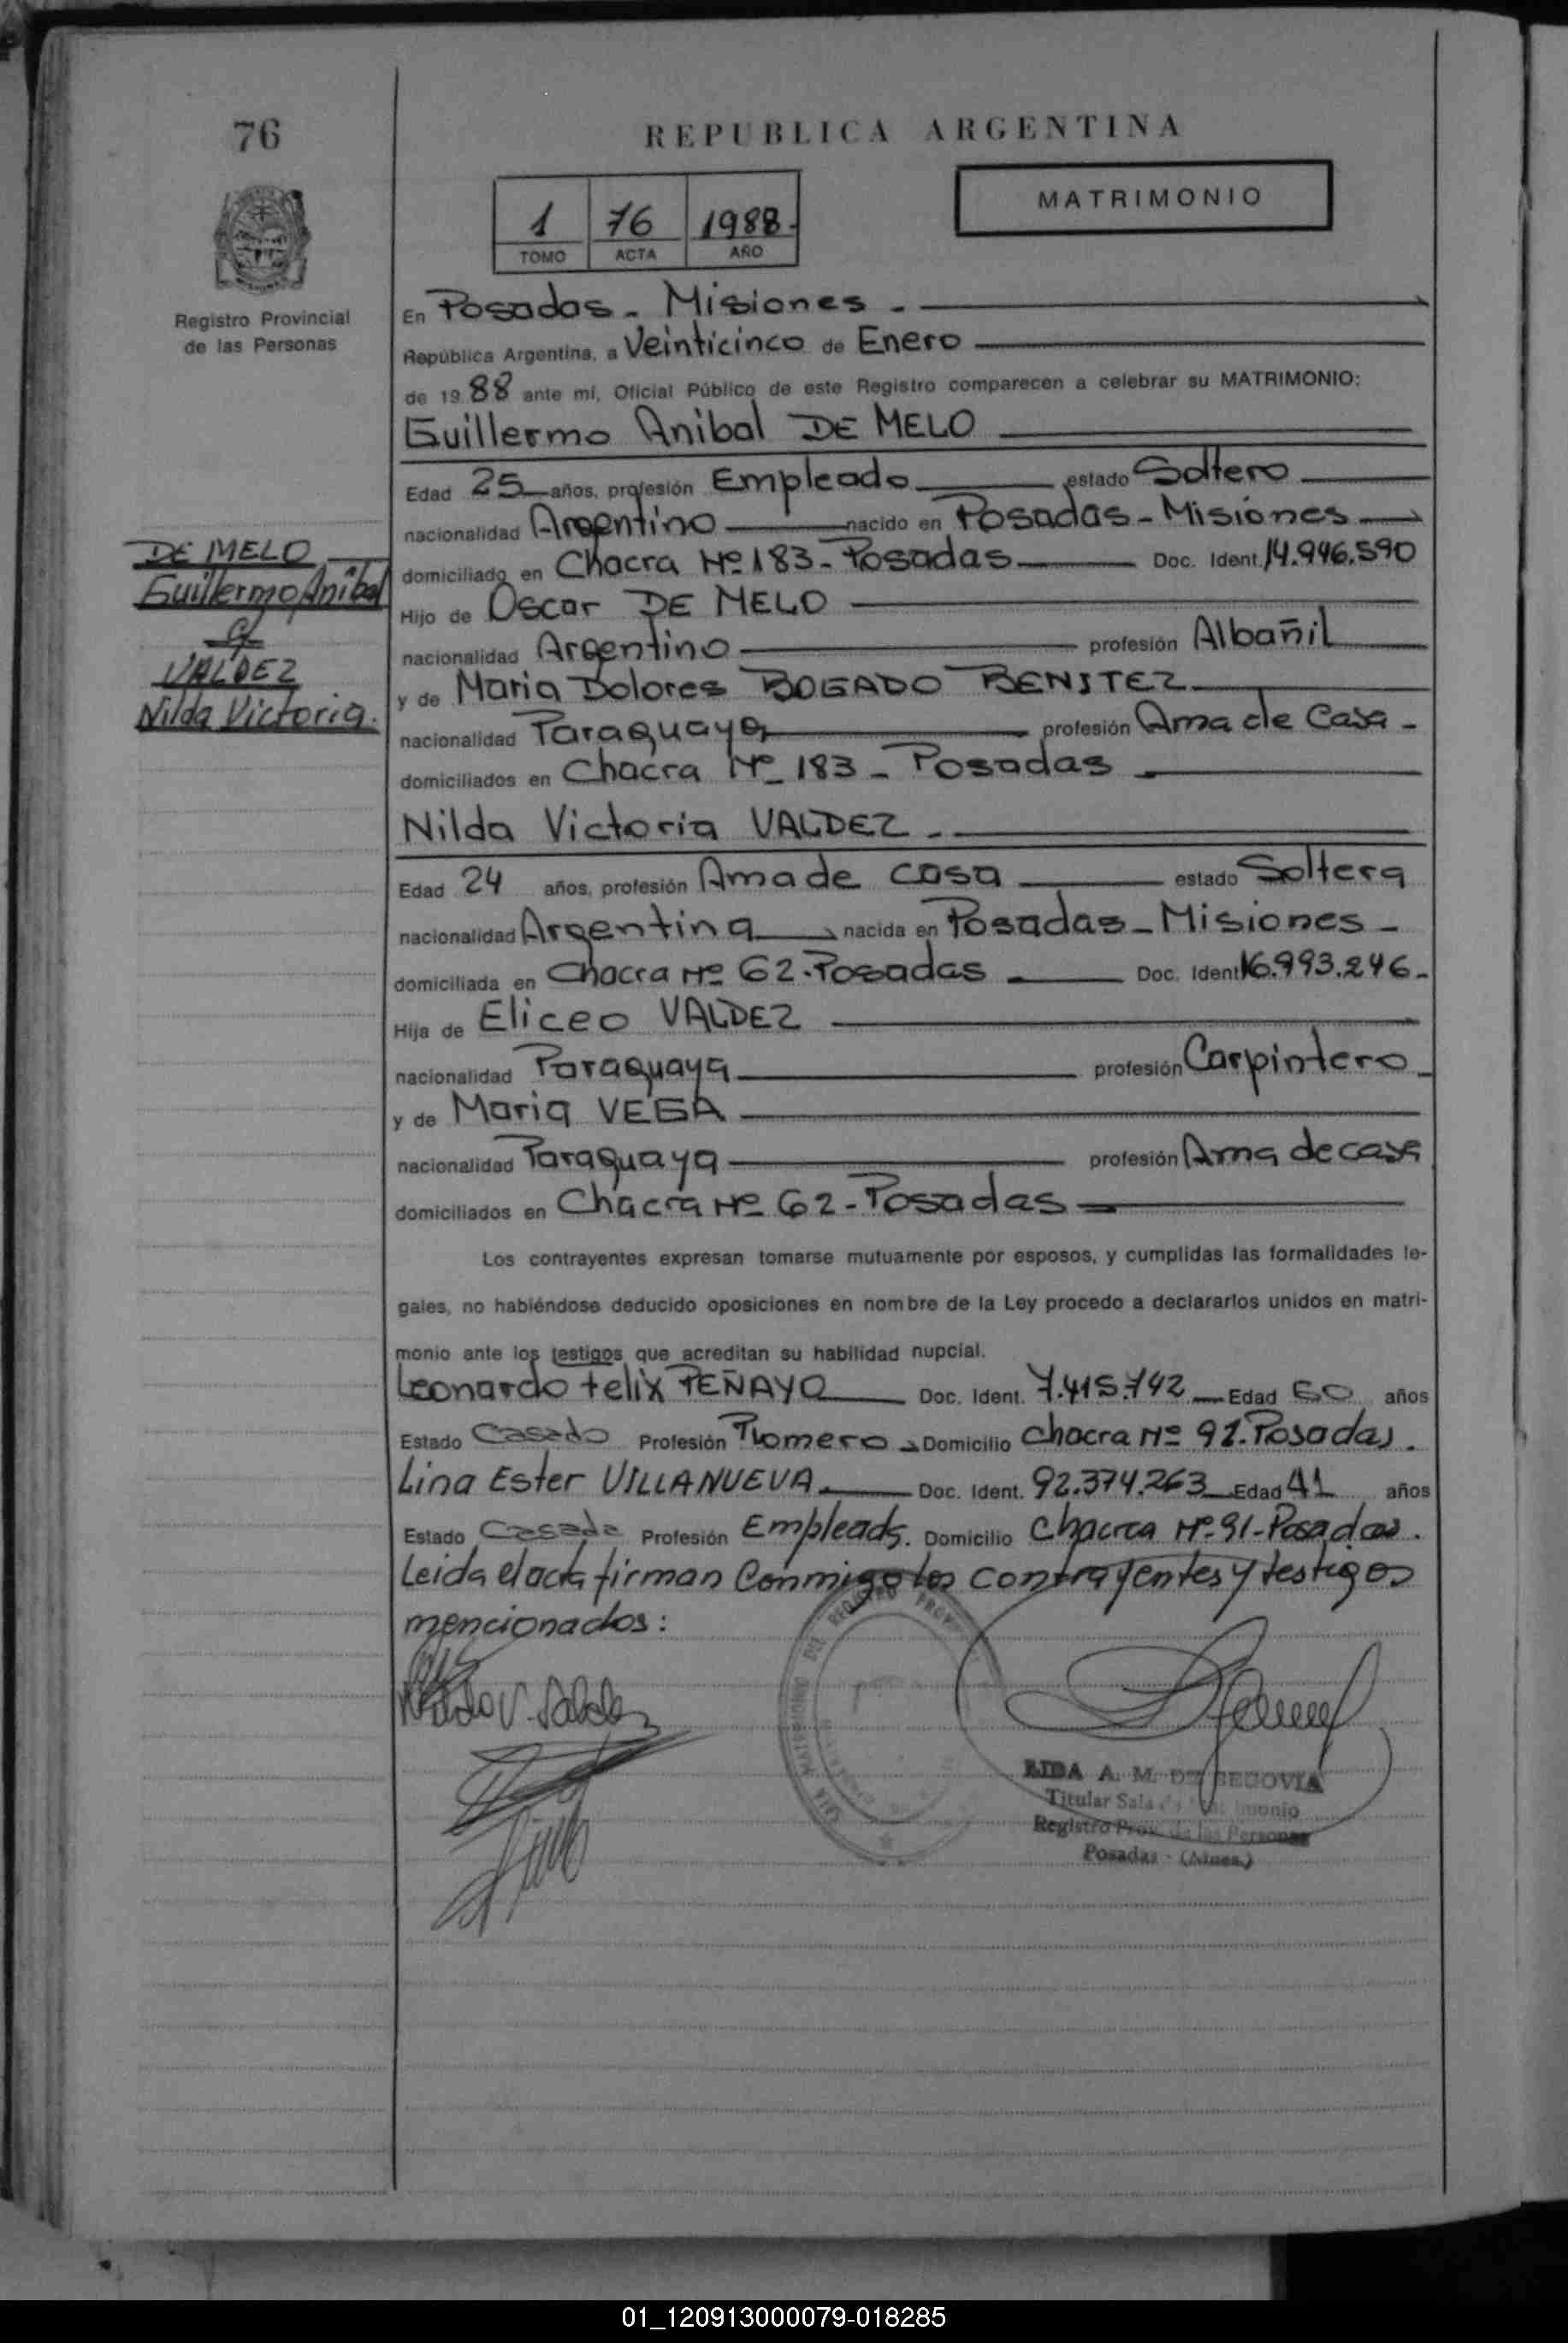 76
REPUBLICA ARGENTINA
MATRIMONIO
1 76 1988.
TOMO ACTA AÑO
Registro Provincial
de las Personas
En Posadas - Misiones -
República Argentina, a Veinticinco de Enero
de 19 88 ante mí, Oficial Público de este Registro comparecen a celebrar su MATRIMONIO:
Guillermo Anibal DE MELO
Edad 25 años, profesión Empleado estado Soltero
nacionalidad Argentino nacido en Posadas - Misiones
domiciliado en Chacra Nº 183 - Posadas Doc. Ident. 14.946.590
DE MELO
Guillermo Anibal
c/
VALDEZ
Nilda Victoria.
Hijo de Oscar DE MELO
nacionalidad Argentino profesión Albañil
y de Maria Dolores BOGADO BENITEZ
nacionalidad Paraguaya profesión Ama de Casa -
domiciliados en Chacra Nº 183 - Posadas
Nilda Victoria VALDEZ -
Edad 24 años, profesión Ama de casa estado Soltera
nacionalidad Argentina nacida en Posadas - Misiones -
domiciliada en Chacra Nº 62 - Posadas Doc. Ident 16.993.246 -
Hija de Eliceo VALDEZ
nacionalidad Paraguaya profesión Carpintero
y de Maria VEGA
nacionalidad Paraguaya profesión Ama de casa
domiciliados en Chacra Nº 62 - Posadas
Los contrayentes expresan tomarse mutuamente por esposos, y cumplidas las formalidades le-
gales, no habiéndose deducido oposiciones en nombre de la Ley procedo a declararlos unidos en matri-
monio ante los testigos que acreditan su habilidad nupcial.
Leonardo Felix PEÑAYO Doc. Ident. 7.415.742 Edad 60 años
Estado Casado Profesión Plomero Domicilio Chacra Nº 92 - Posadas.
Lina Ester VILLANUEVA Doc. Ident. 92.374.263 Edad 41 años
Estado Casada Profesión Empleada. Domicilio Chacra Nº 91 - Posadas.
Leida el acta firman conmigo los contrayentes y testigos
mencionados:
LIDA A. M. DE SEGOVIA
Titular Sala
Registro Prov. de las Personas
Posadas - (Mnes.)
01_120913000079-018285